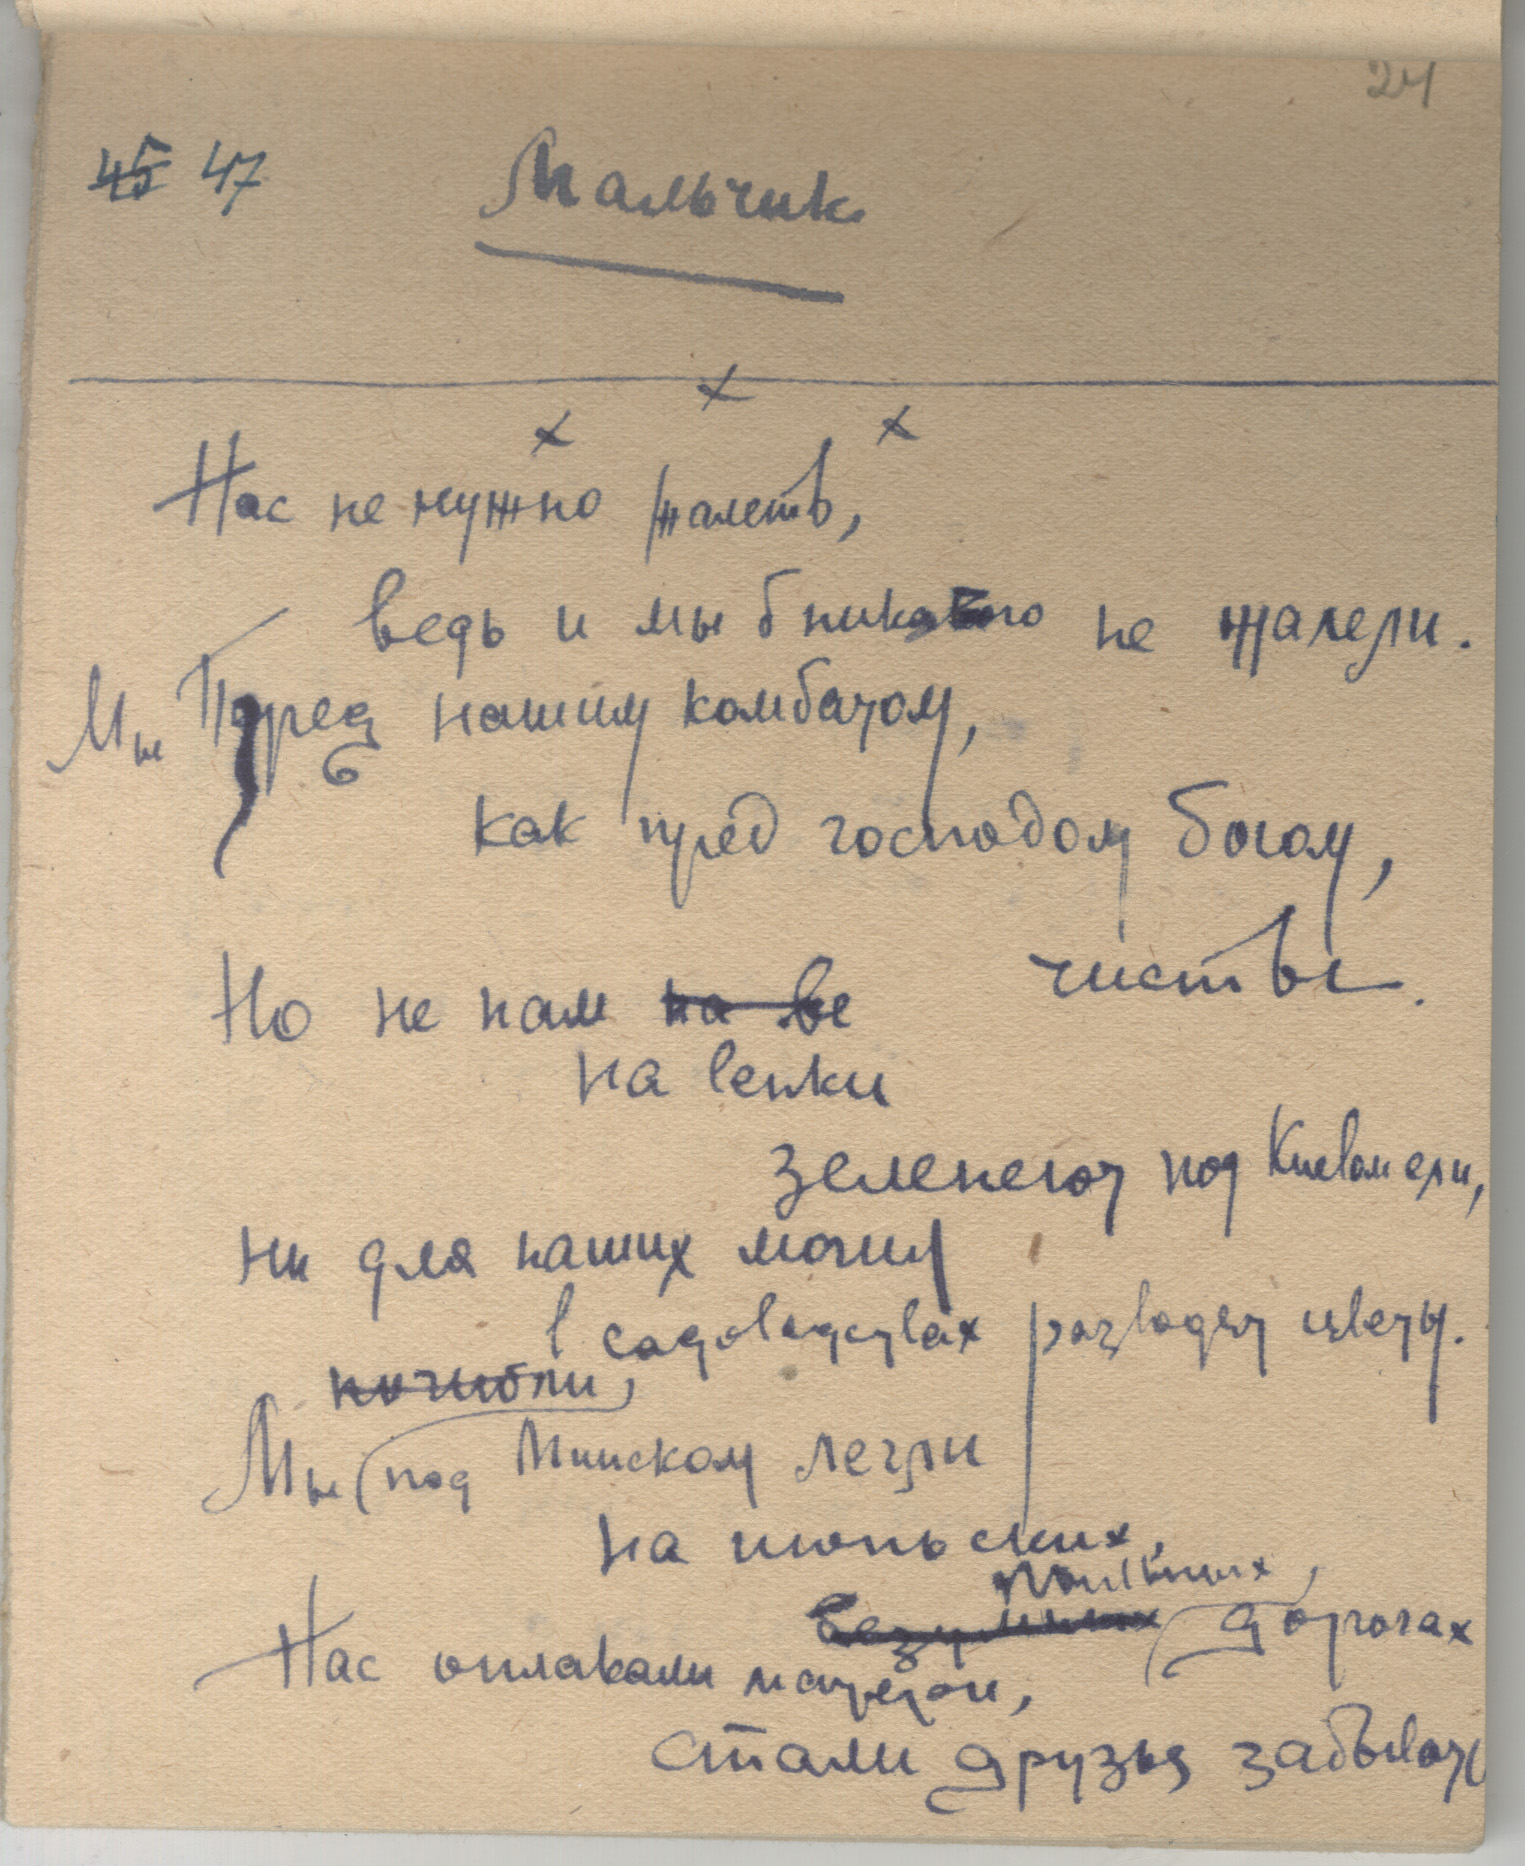 24
45 47
Мальчик
х х х
Нас не нужно жалеть,
ведь и мы б никого не жалели.
Мы пред нашим комбатом,
как пред господом богом,
чисты.
Но не нам на ве
на венки
зеленеют под Киевом ели,
ни для наших могил
в садоводствах разводят цветы.
погибли,
Мы под Минском легли
на июньских,
пыльных,
безумных дорогах
Нас оплакали матери,
стали друзья забывать